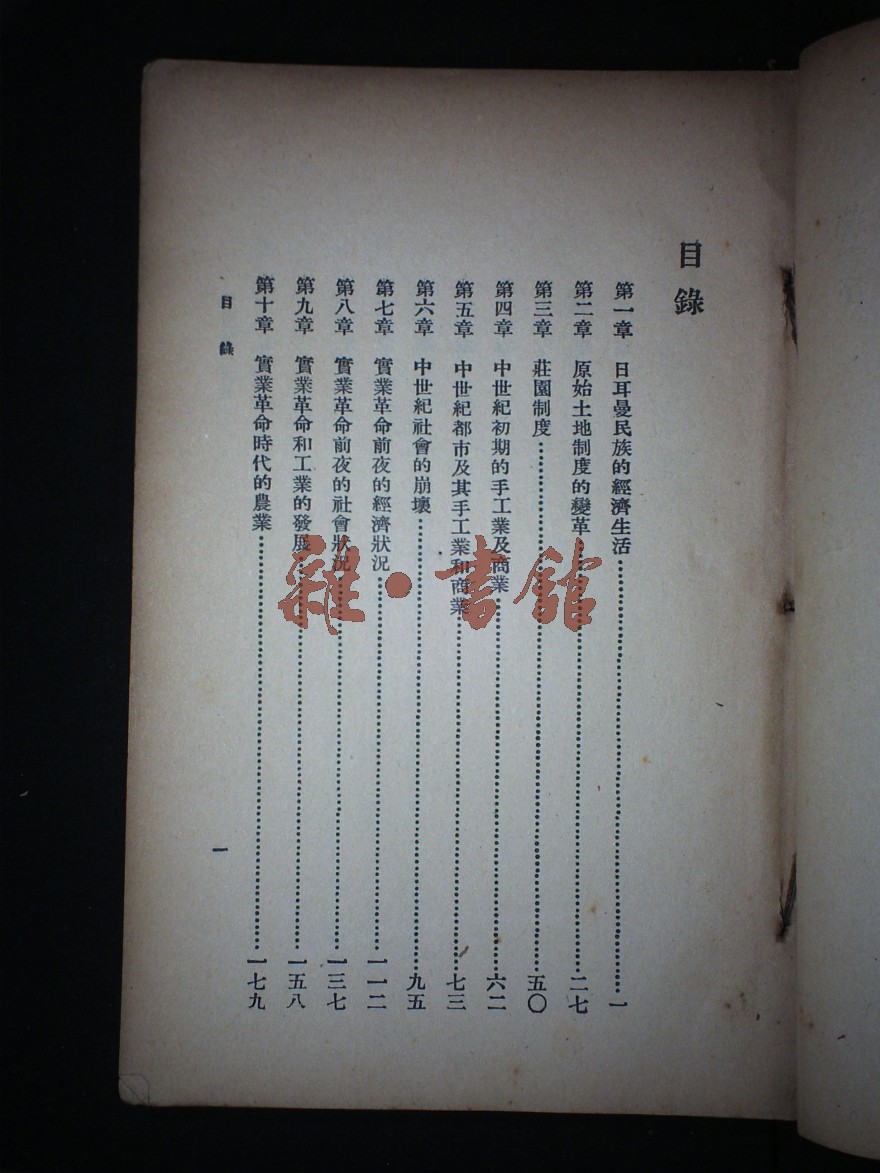 目錄
第一章 日耳曼民族的經濟生活……一
第二章 原始土地制度的變革……二七
第三章 莊園制度……五〇
第四章 中世紀初期的手工業及商業……六二
第五章 中世紀都市及其手工業和商業……七三
第六章 中世紀社會的崩壞……九五
第七章 實業革命前夜的經濟狀況……一一二
第八章 實業革命前夜的社會狀況……一三七
第九章 實業革命和工業的發展……一五八
第十章 實業革命時代的農業……一七九
目錄
一
雜·書館